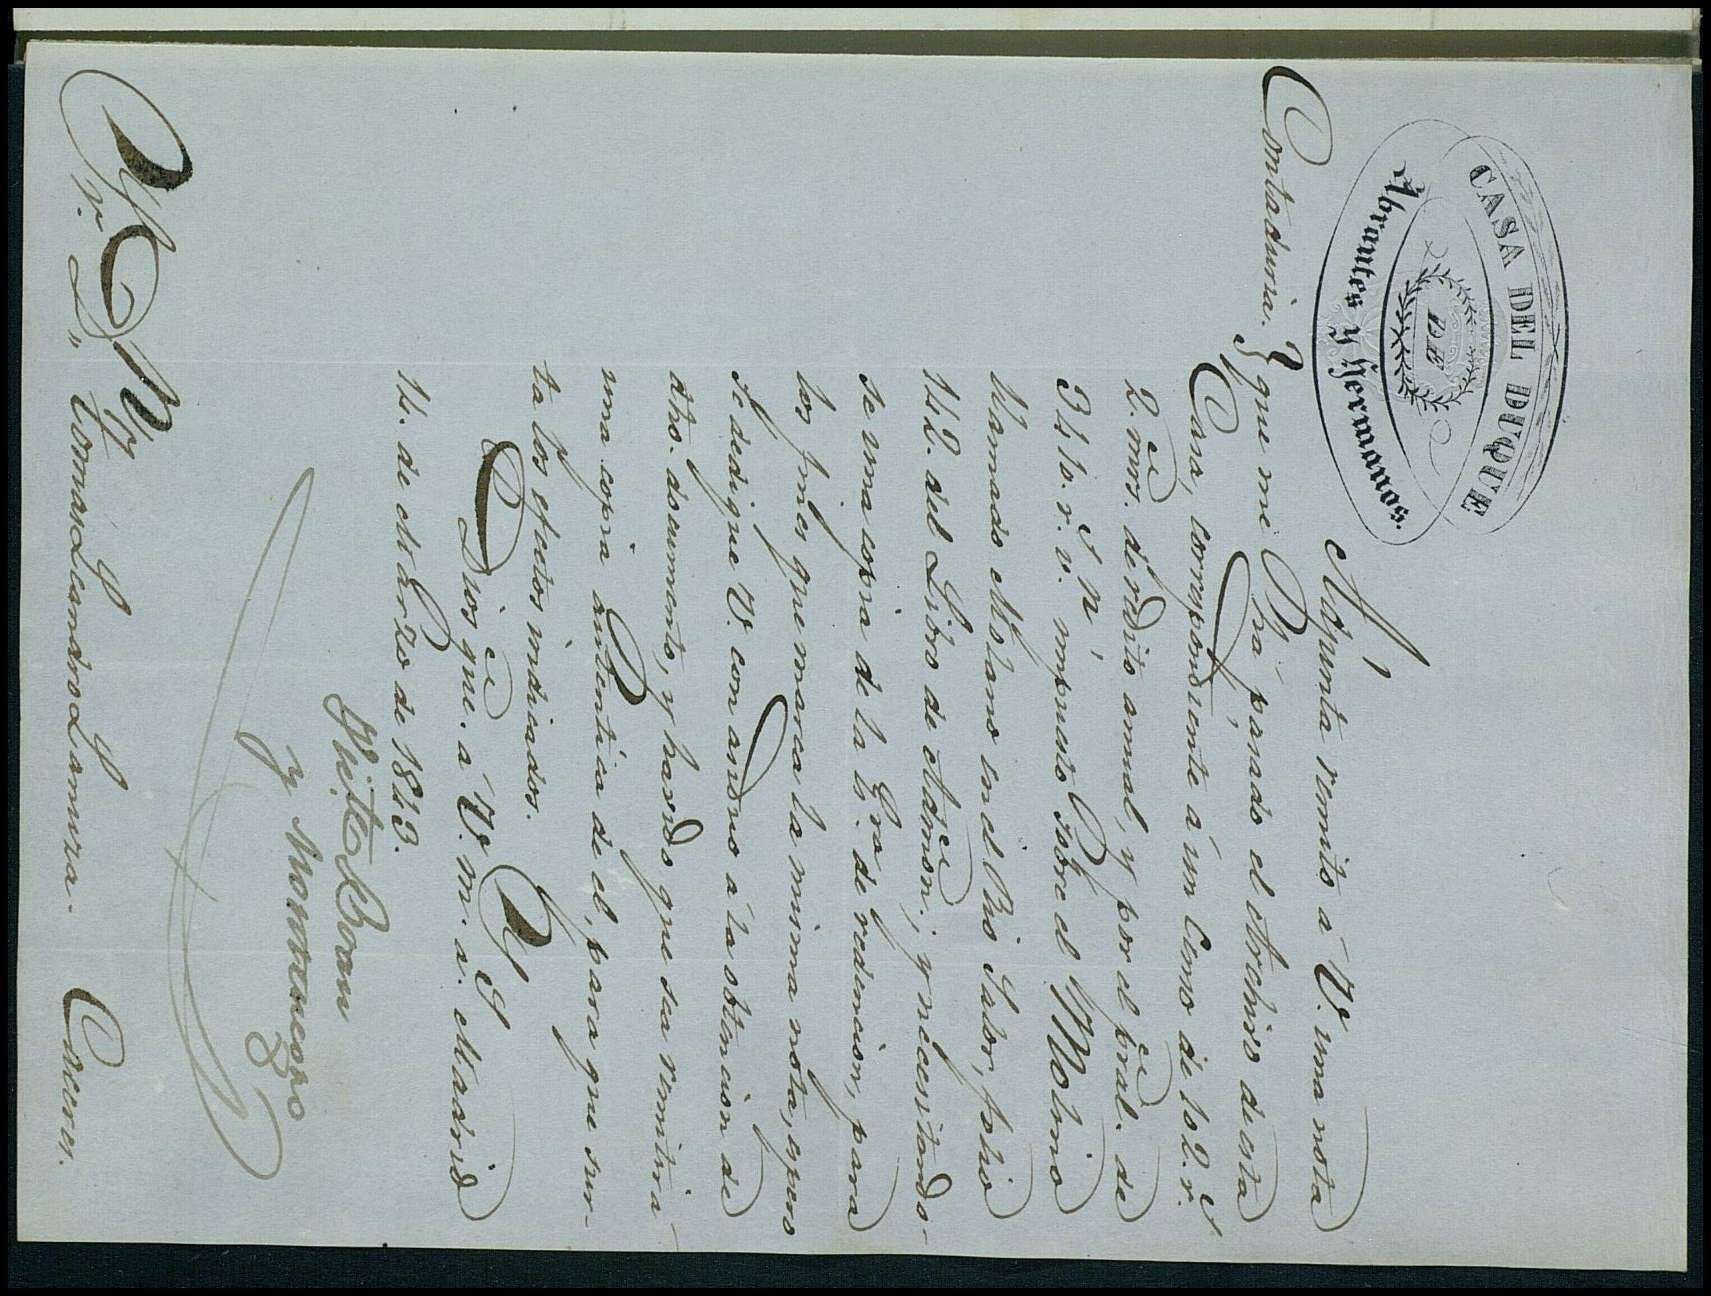 CASA DEL DUQUE
DE
Abrantes y Hermanos.
Contaduria.
Adjunta remito á V. una nota
que me há pasado el Archivo de esta
Casa, correspondiente á un Censo de 102 r.s
2. mrs. de rédito anual, y por el pral. de
3410. r.s v.n impuesto sobre el Molino
llamado Molano en el Rio Salor, folio
142. del Libro de Admon.; y necesitando-
se una copia de la de redencion, para
los fines que marca la misma nota, espero
se dedique V. con asiduo á la obtencion de
dho. documento, y haciendo que sea remitirá
una copia autentica de el, para que sur-
ta los efectos indicados.
Dios gue. a V. m. a. Madrid
14. de Marzo de 1843.
y Montenegro
Sr. Dn. Tomas Leandro Lamura. Caceres.